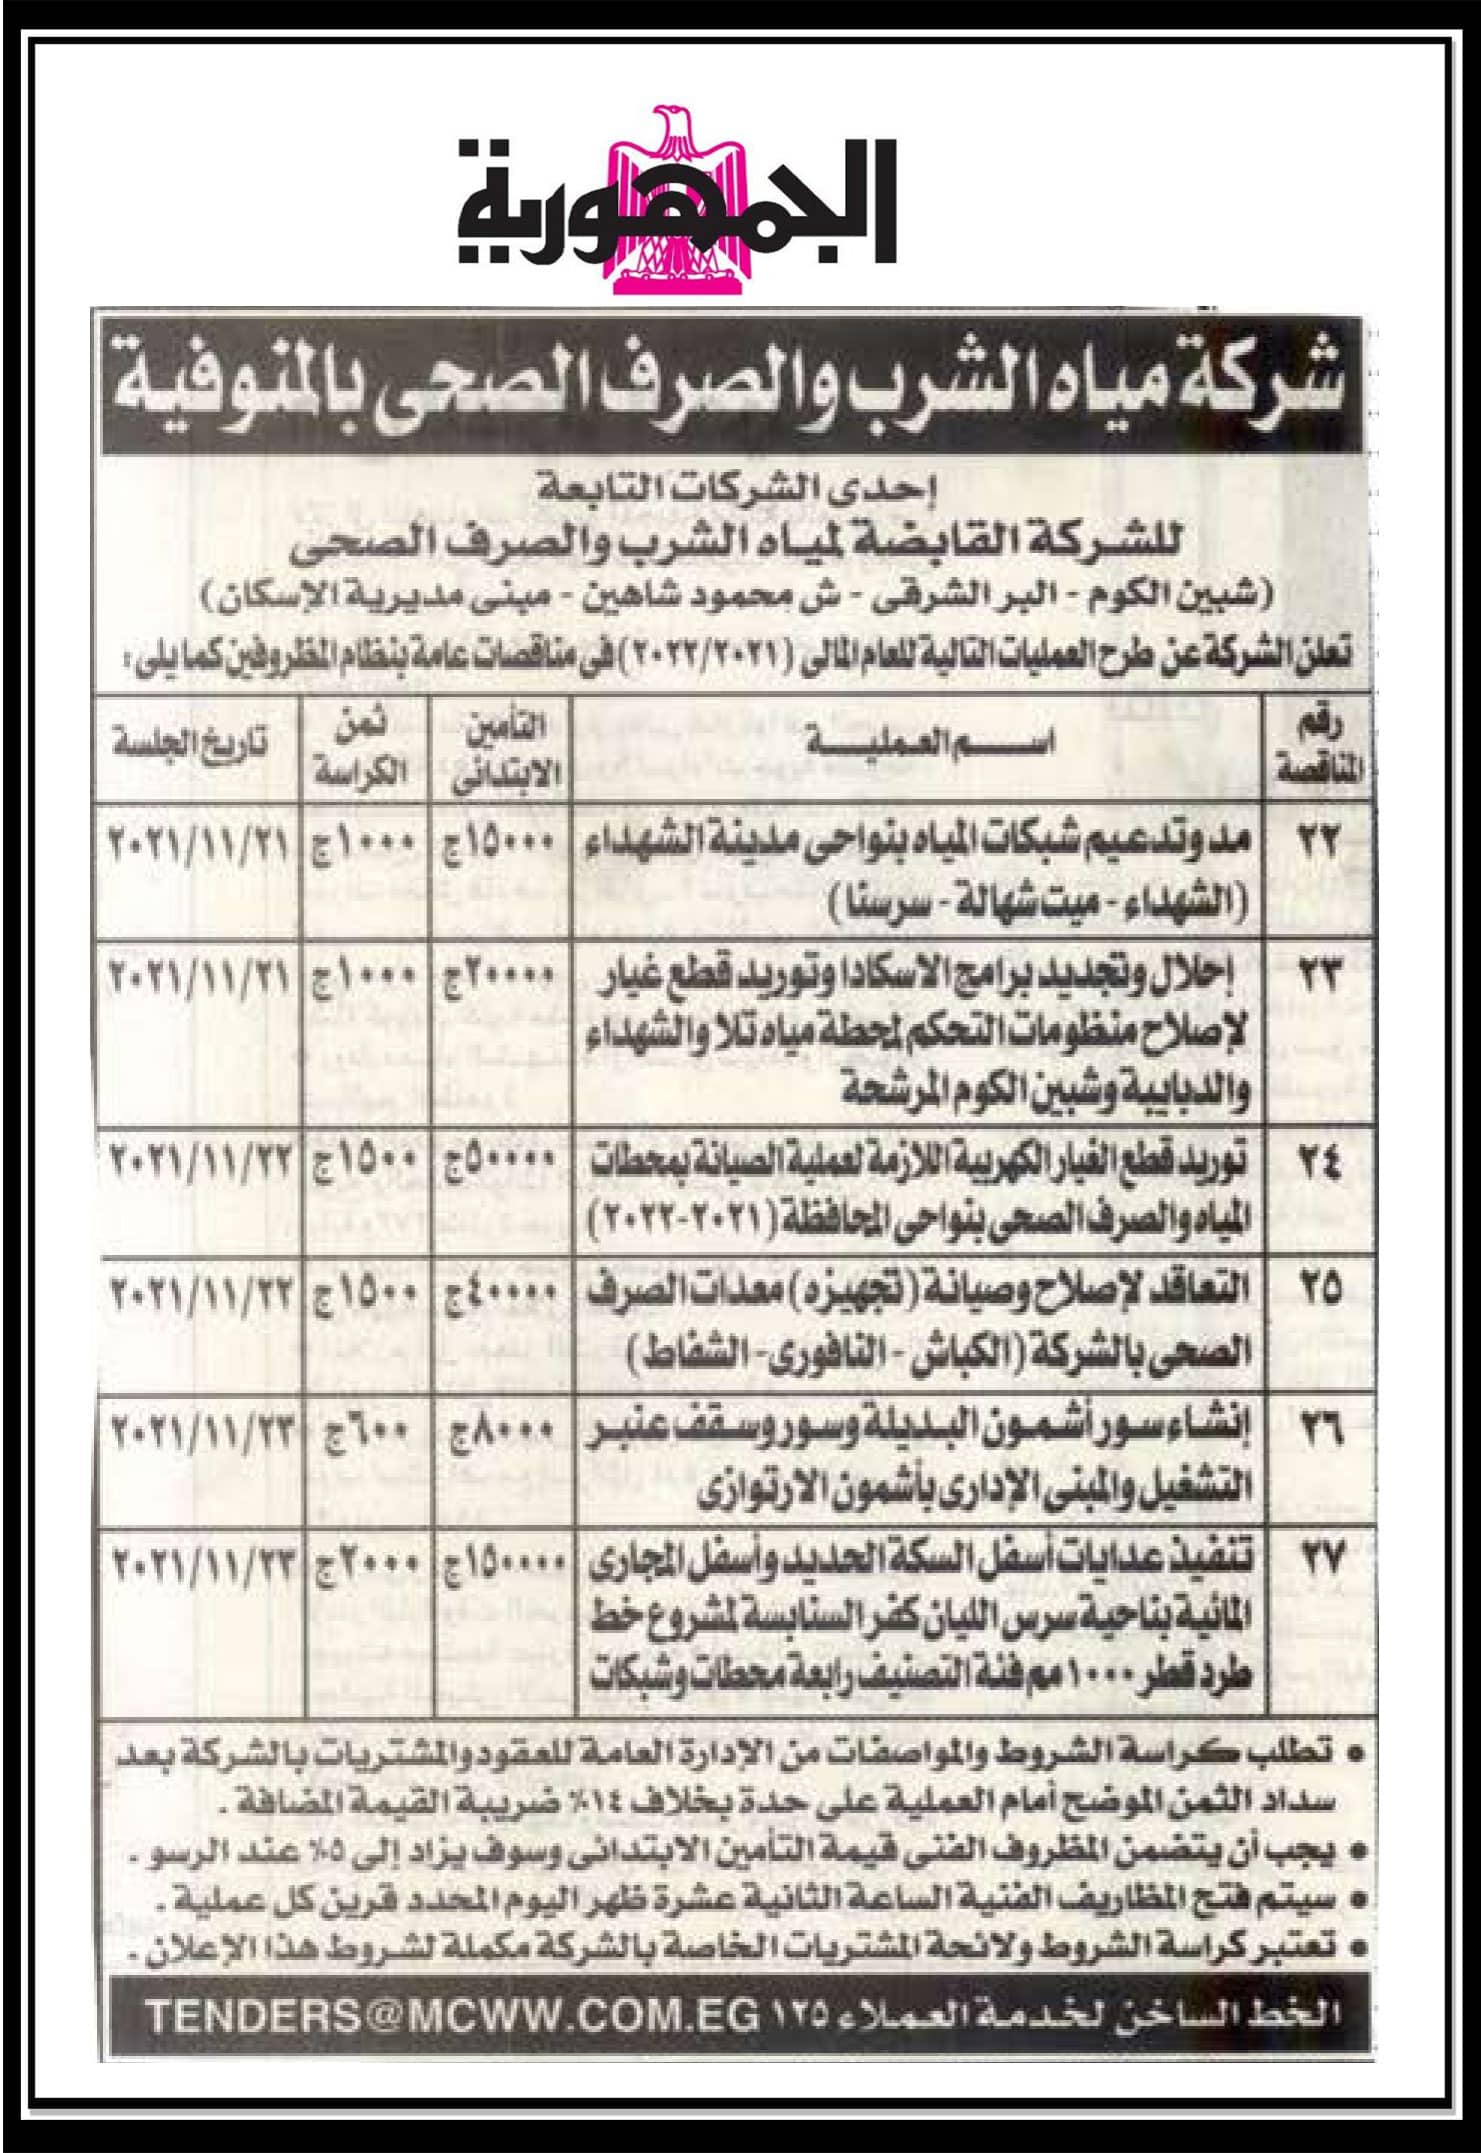 الجمهورية
شركة مياه الشرب والصرف الصحى بالمنوفية
إحدى الشركات التابعة
للشركة القابضة لمياه الشرب والصرف الصحى
(شبين الكوم - البر الشرقى - ش محمود شاهين - مبنى مديرية الإسكان)
تعلن الشركة عن طرح العمليات التالية للعام المالى (٢٠٢٢/٢٠٢١) فى مناقصات عامة بنظام المظروفين كما يلى:
رقم المناقصة	اسم العملية	التأمين الابتدائى	ثمن الكراسة	تاريخ الجلسة
٢٢	مد وتدعيم شبكات المياه بنواحى مدينة الشهداء	١٥٠٠٠ج	١٠٠٠ج	٢٠٢١/١١/٢١
(الشهداء - ميت شهالة - سرسنا)
٢٣	إحلال وتجديد برامج الاسكادا وتوريد قطع غيار	٢٠٠٠٠ج	١٠٠٠ج	٢٠٢١/١١/٢١
لإصلاح منظومات التحكم لمحطة مياه تلا والشهداء
والدبايبة وشبين الكوم المرشحة
٢٤	توريد قطع الغيار الكهربية اللازمة لعملية الصيانة بمحطات	٥٠٠٠٠ج	١٥٠٠ج	٢٠٢١/١١/٢٢
المياه والصرف الصحى بنواحى المحافظة (٢٠٢١-٢٠٢٢)
٢٥	التعاقد لإصلاح وصيانة (تجهيزه) معدات الصرف	٤٠٠٠٠ج	١٥٠٠ج	٢٠٢١/١١/٢٢
الصحى بالشركة (الكباش - النافورى - الشفاط)
٢٦	إنشاء سور أشمون البديلة وسور وسقف عنبر	٨٠٠٠ج	٦٠٠ج	٢٠٢١/١١/٢٣
التشغيل والمبنى الإدارى بأشمون الارتوازى
٢٧	تنفيذ عدايات أسفل السكة الحديد وأسفل المجارى	١٥٠٠٠٠ج	٢٠٠٠ج	٢٠٢١/١١/٢٣
المائية بناحية سرس الليان كفر السنابسة لمشروع خط
طرد قطر ١٠٠٠ مم فئة التصنيف رابعة محطات وشبكات
• تطلب كراسة الشروط والمواصفات من الإدارة العامة للعقود والمشتريات بالشركة بعد
سداد الثمن الموضح أمام العملية على حدة بخلاف ١٤٪ ضريبة القيمة المضافة .
• يجب أن يتضمن المظروف الفنى قيمة التأمين الابتدائى وسوف يزاد إلى ٥٪ عند الرسو .
• سيتم فتح المظاريف الفنية الساعة الثانية عشرة ظهر اليوم المحدد قرين كل عملية .
• تعتبر كراسة الشروط ولائحة المشتريات الخاصة بالشركة مكملة لشروط هذا الإعلان .
الخط الساخن لخدمة العملاء ١٢٥ TENDERS@MCWW.COM.EG